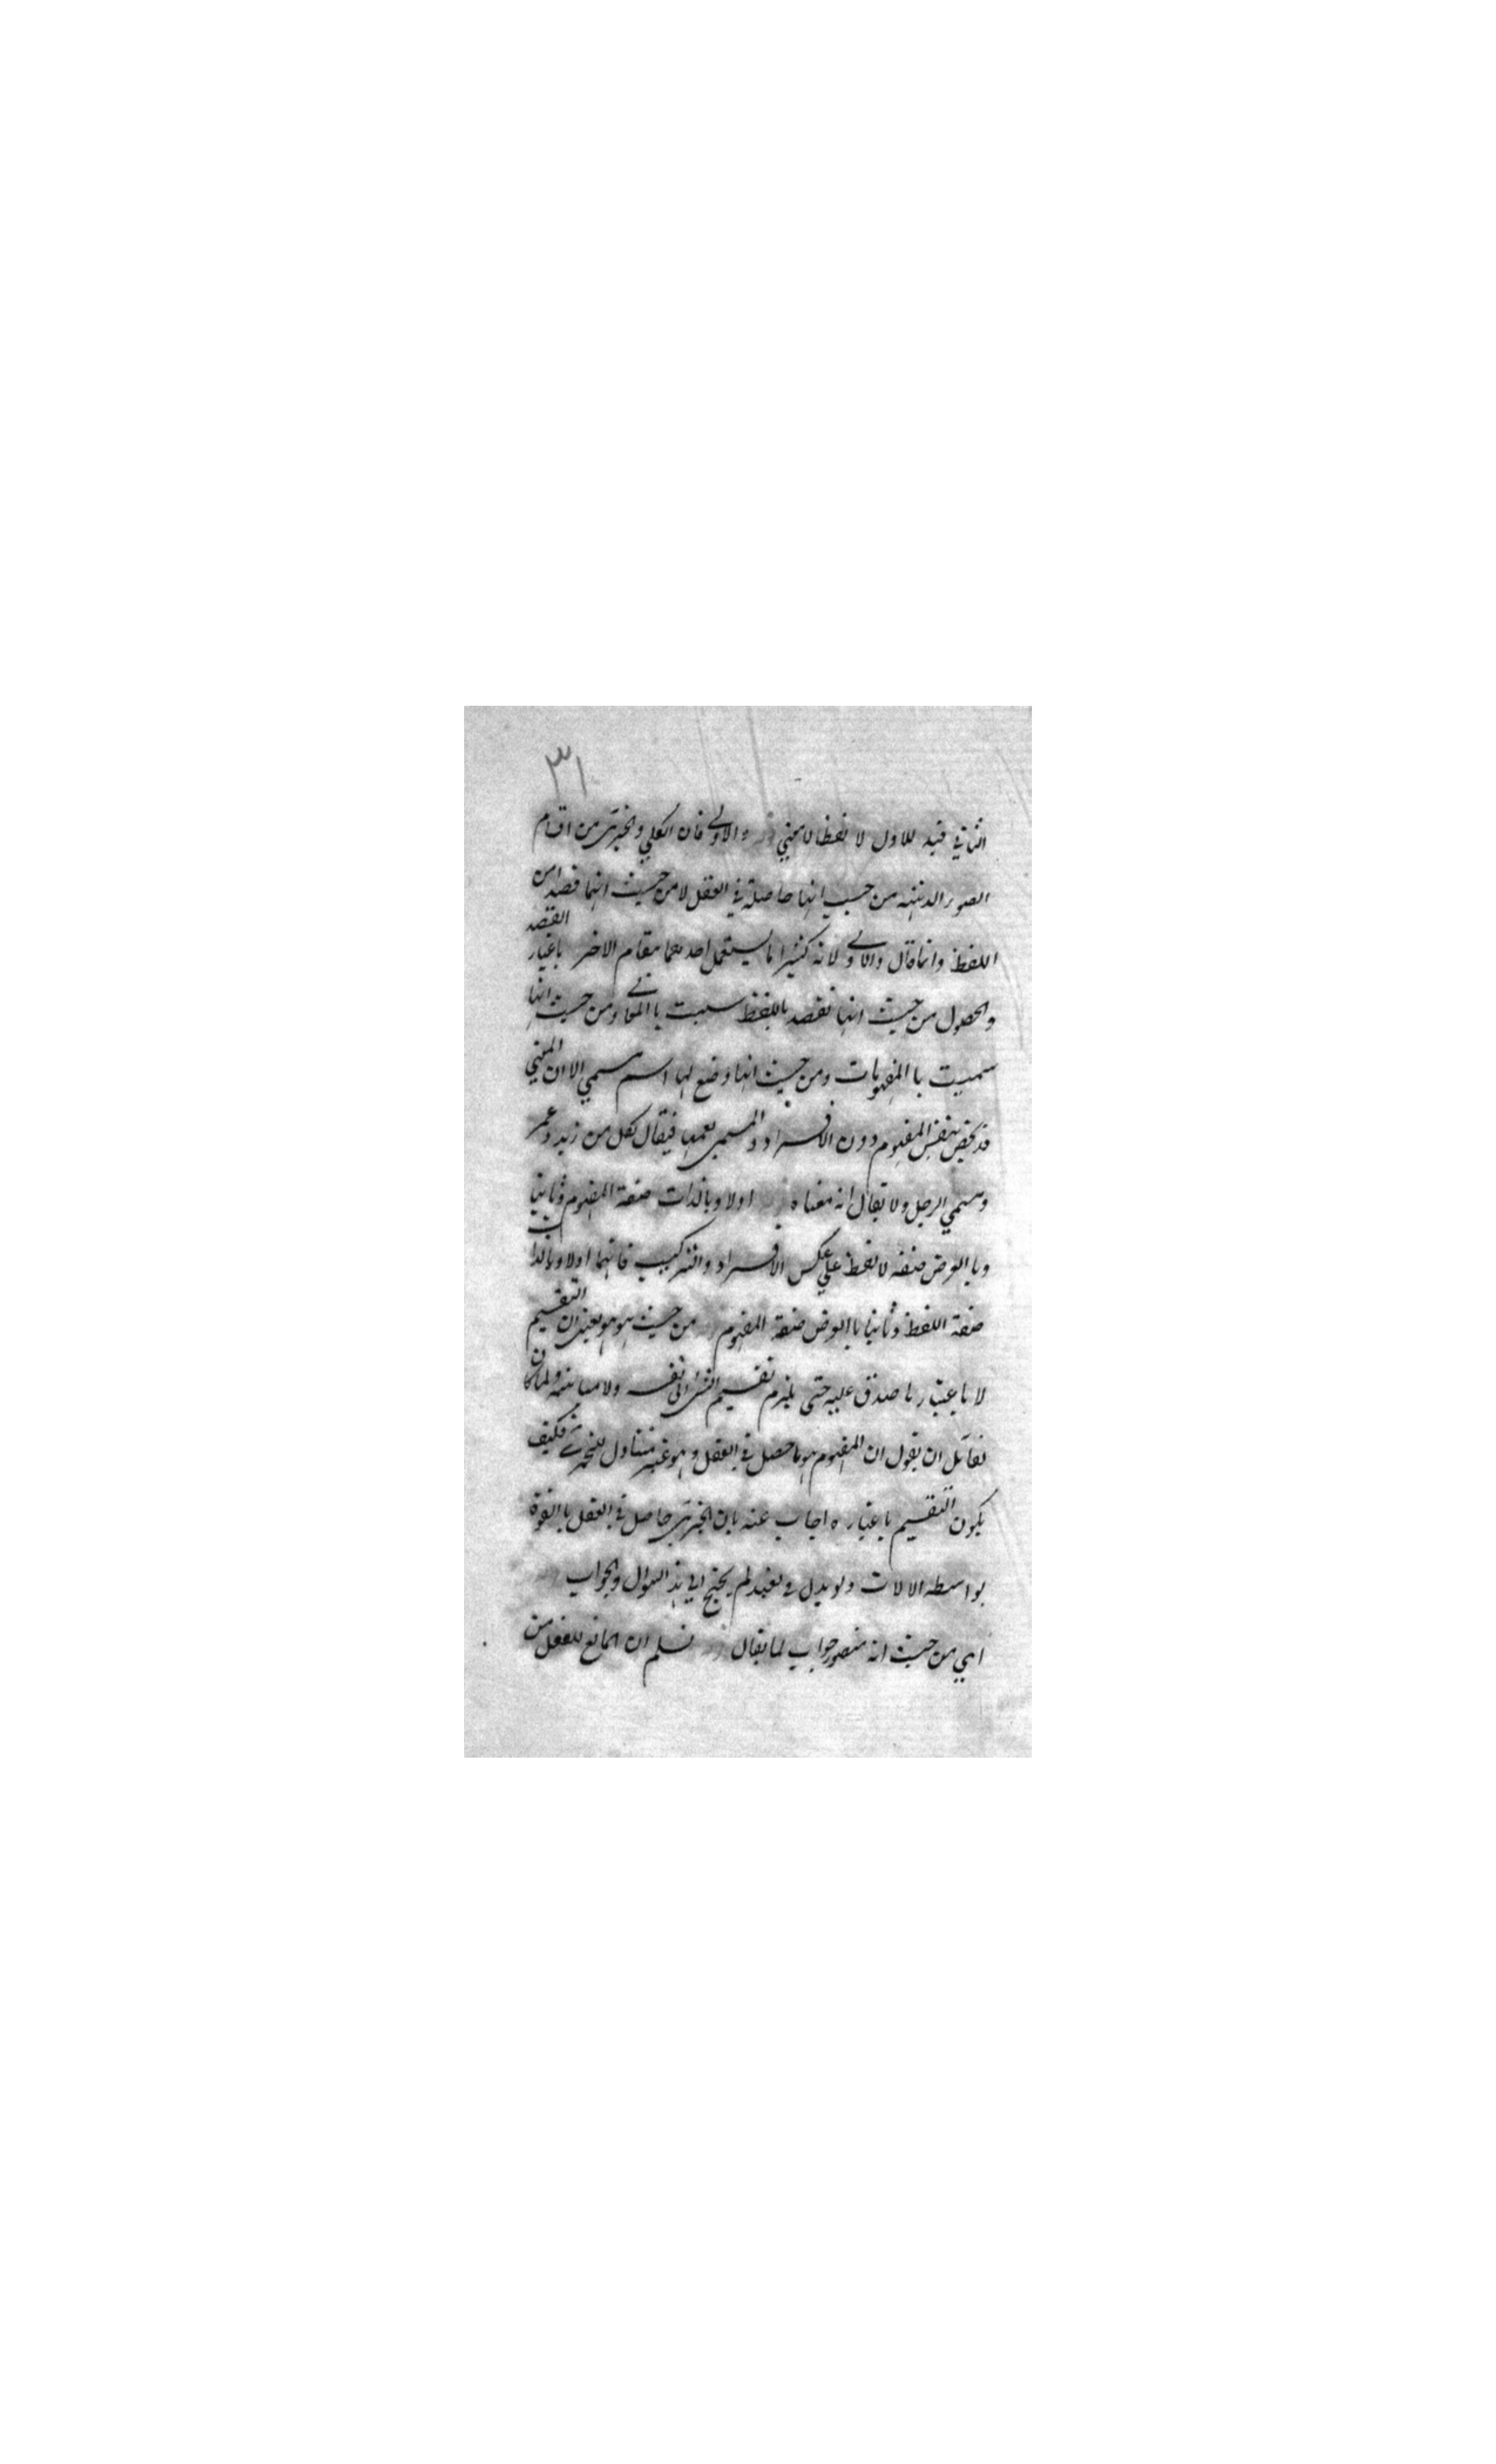 ٣١
الثاني قيد للاول لا لفظا لا معنى والاولى فان الكلي والجزئي من اقسام
الصور الذهنيه من حيث انها حاصلة في العقل لا من حيث انها قصد من
اللفظ وانما قال والاولى لانه كثيرا ما يستعمل احدهما مقام الاخر باعتبار القصد
والحصول من حيث انها تقصد باللفظ سميت باالمعاني ومن حيث انها
سميت باالمفهومات ومن حيث انها وضع لها اسم مسمى الا ان المعنى
قد يخص بنفس المفهوم دون الافراد والمسمى يعمها فيقال لكل من زيد وعمر
ومسمى الرجل ولا يقال انه معناه اولا وبالذات صفة المفهوم وثانيا
وباالعرض صفه لالفظ على عكس الافراد والتركيب فانهما اولا وبالذات
صفة اللفظ وثانيا باالعرض صفة المفهوم من حيث هو هو يعنى ان التقسيم
لا باعتبار ما صدق عليه حتى يلزم تقسيم الشى الى نفسه ولا مباينه ولما كان
لقائل ان يقول ان المفهوم هو ما حصل في العقل وهو غير متناول للجزئي فكيف
يكون التقسيم باعتباره اجاب عنه بان الجزئي حاصل في العقل باالقوة
بواسطه الالات ولو بدل لم يحتج الى هذ السوال والجواب
اي من حيث انه متصور جواب لما يقال نسلم ان المانع للعقل من